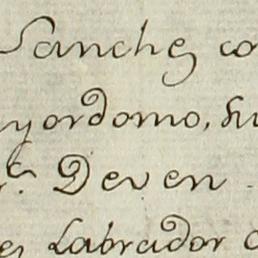 Sanchez co
yordomo, su
r.s Deven
es Labrador